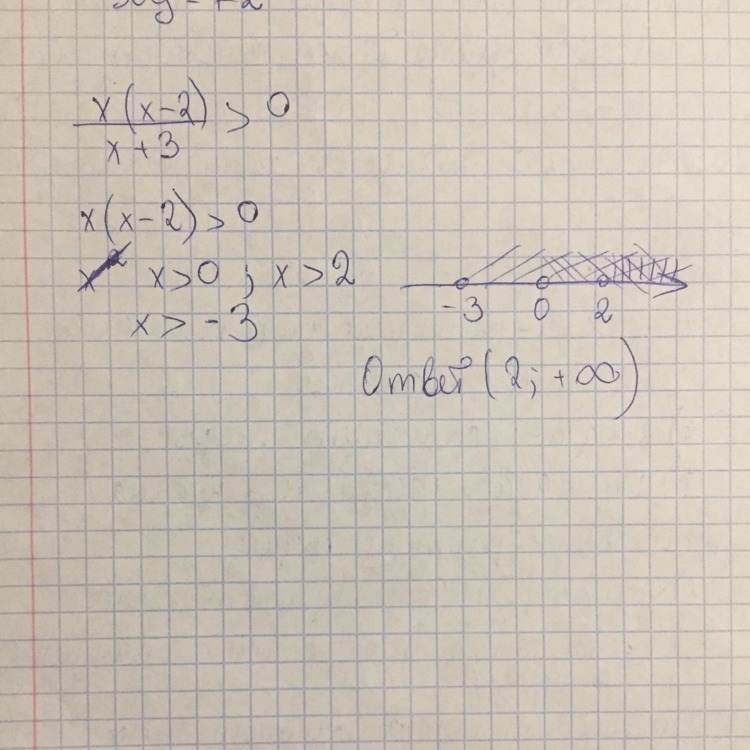 x(x-2)/x+3 > 0
x(x-2) > 0
x>0 ; x>2
x > -3
-3 0 2
Ответ (2; +∞)